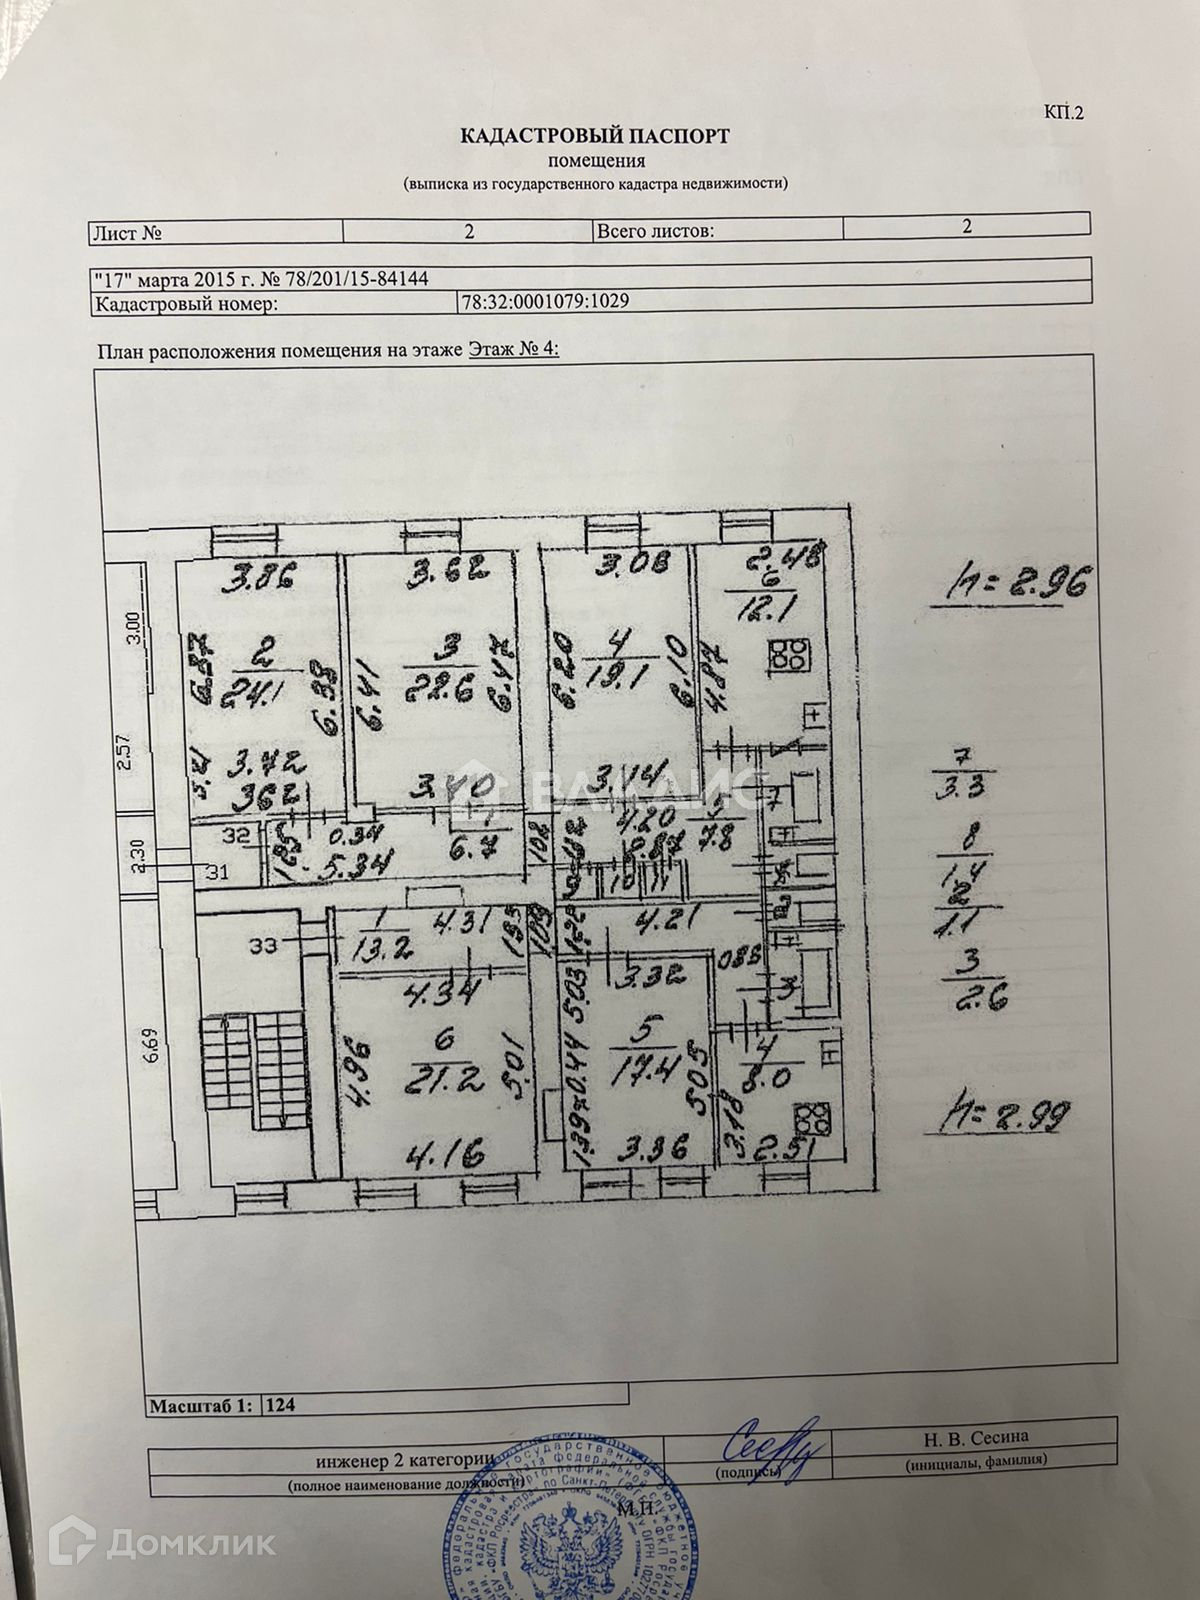 КП.2
КАДАСТРОВЫЙ ПАСПОРТ
помещения
(выписка из государственного кадастра недвижимости)
Лист № 2 Всего листов: 2
"17" марта 2015 г. № 78/201/15-84144
Кадастровый номер: 78:32:0001079:1029
План расположения помещения на этаже Этаж № 4:
3.86 3.62 3.08 2.48
6
12.1
h = 2.96
3.00
6.87
2
24.1
6.99
6.41
3
22.6
6.47
6.20
4
19.1
6.10
4.87
2.57
5.21
3.72
3.62
3.40
3.14
ВАЛДАЙС
7
3.3
32
0.34
4.20
5
7.8
7
2.30
31
1.85
5.34
6.7
1.02
2.87
10
11
8
1.4
2
1.1
33
1
13.2
4.31
1.35
1.09
1.22
4.21
0.85
3
2.6
4.34
3.32
3
6.69
4.96
6
21.2
5.01
5.03
0.44
1.397
5
17.4
5.05
4
8.0
3.18
4.16
3.36
2.51
h = 2.99
Масштаб 1: 124
инженер 2 категории
Н. В. Сесина
(полное наименование должности)
(подпись)
(инициалы, фамилия)
М.П.
Домклик